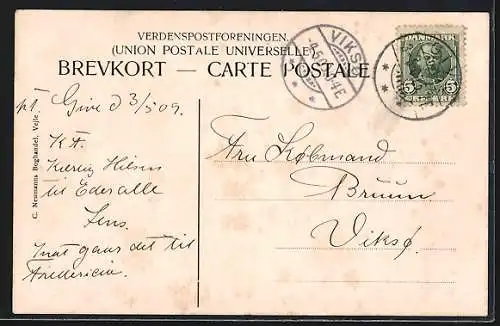 VERDENSPOSTFORENINGEN
(UNION POSTALE UNIVERSELLE)
BREVKORT — CARTE POSTALE
DANMARK
5 5
VIKSØ
pt. Give d 3/5 09.
Kærlig Hilsen
til Eder alle
Jens.
gaar det til
Fredericia.
Fru Købmand
Bruun
Viksø.
C. Neumanns Boghandel, Vejle.